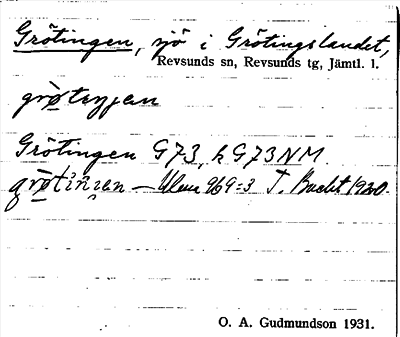 Grötingen, sjö i Grötingslandet,
Revsunds sn, Revsunds tg, Jämtl. l.
Grötingen G73, k G73NM.
grøtinȷen — Ulma 969:3 T. Bucht 1920.
O. A. Gudmundson 1931.